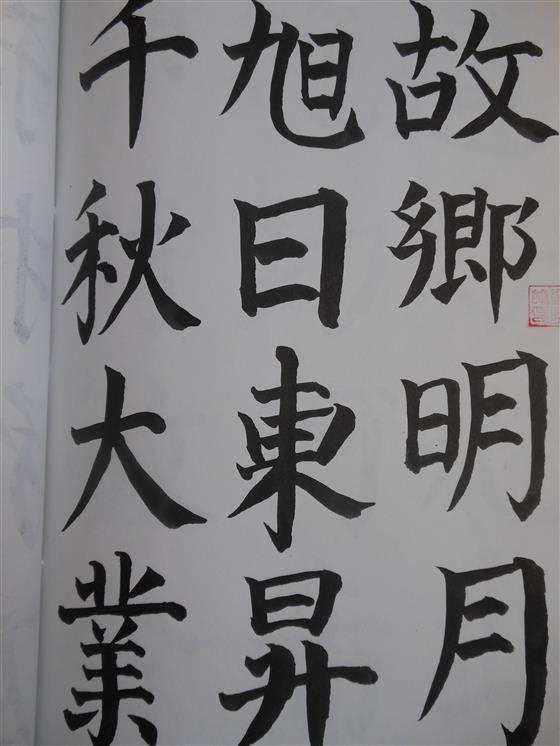 故鄉明月
旭日東昇
千秋大業